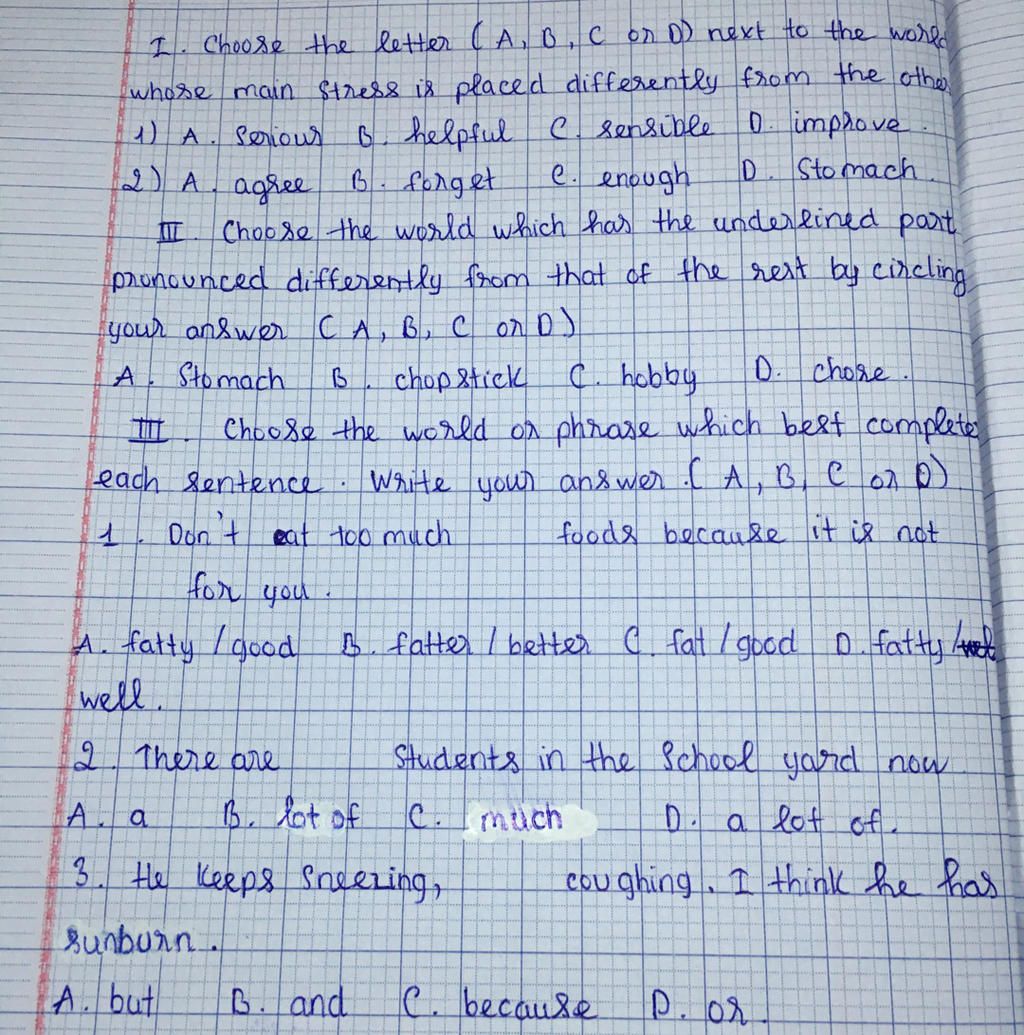 I. Choose the letter (A, B, C or D) next to the world
whose main stress is placed differently from the other
1) A. Serious B. helpful C. sensible D. improve.
2) A. agree B. forget C. enough D. Stomach.
II. Choose the world which has the underlined part
pronounced differently from that of the rest by circling
your answer (A, B, C or D)
A. Stomach B. chopstick C. hobby D. chose.
III. Choose the world or phrase which best complete
each sentence. Write your answer. (A, B, C or D)
1. Don't eat too much foods because it is not
for you.
A. fatty / good B. fatter / better C. fat / good D. fatty /
well.
2. There are Students in the School yard now
A. a B. lot of C. much D. a lot of.
3. He keeps Sneezing, coughing. I think he has
sunburn.
A. but B. and C. because D. or.